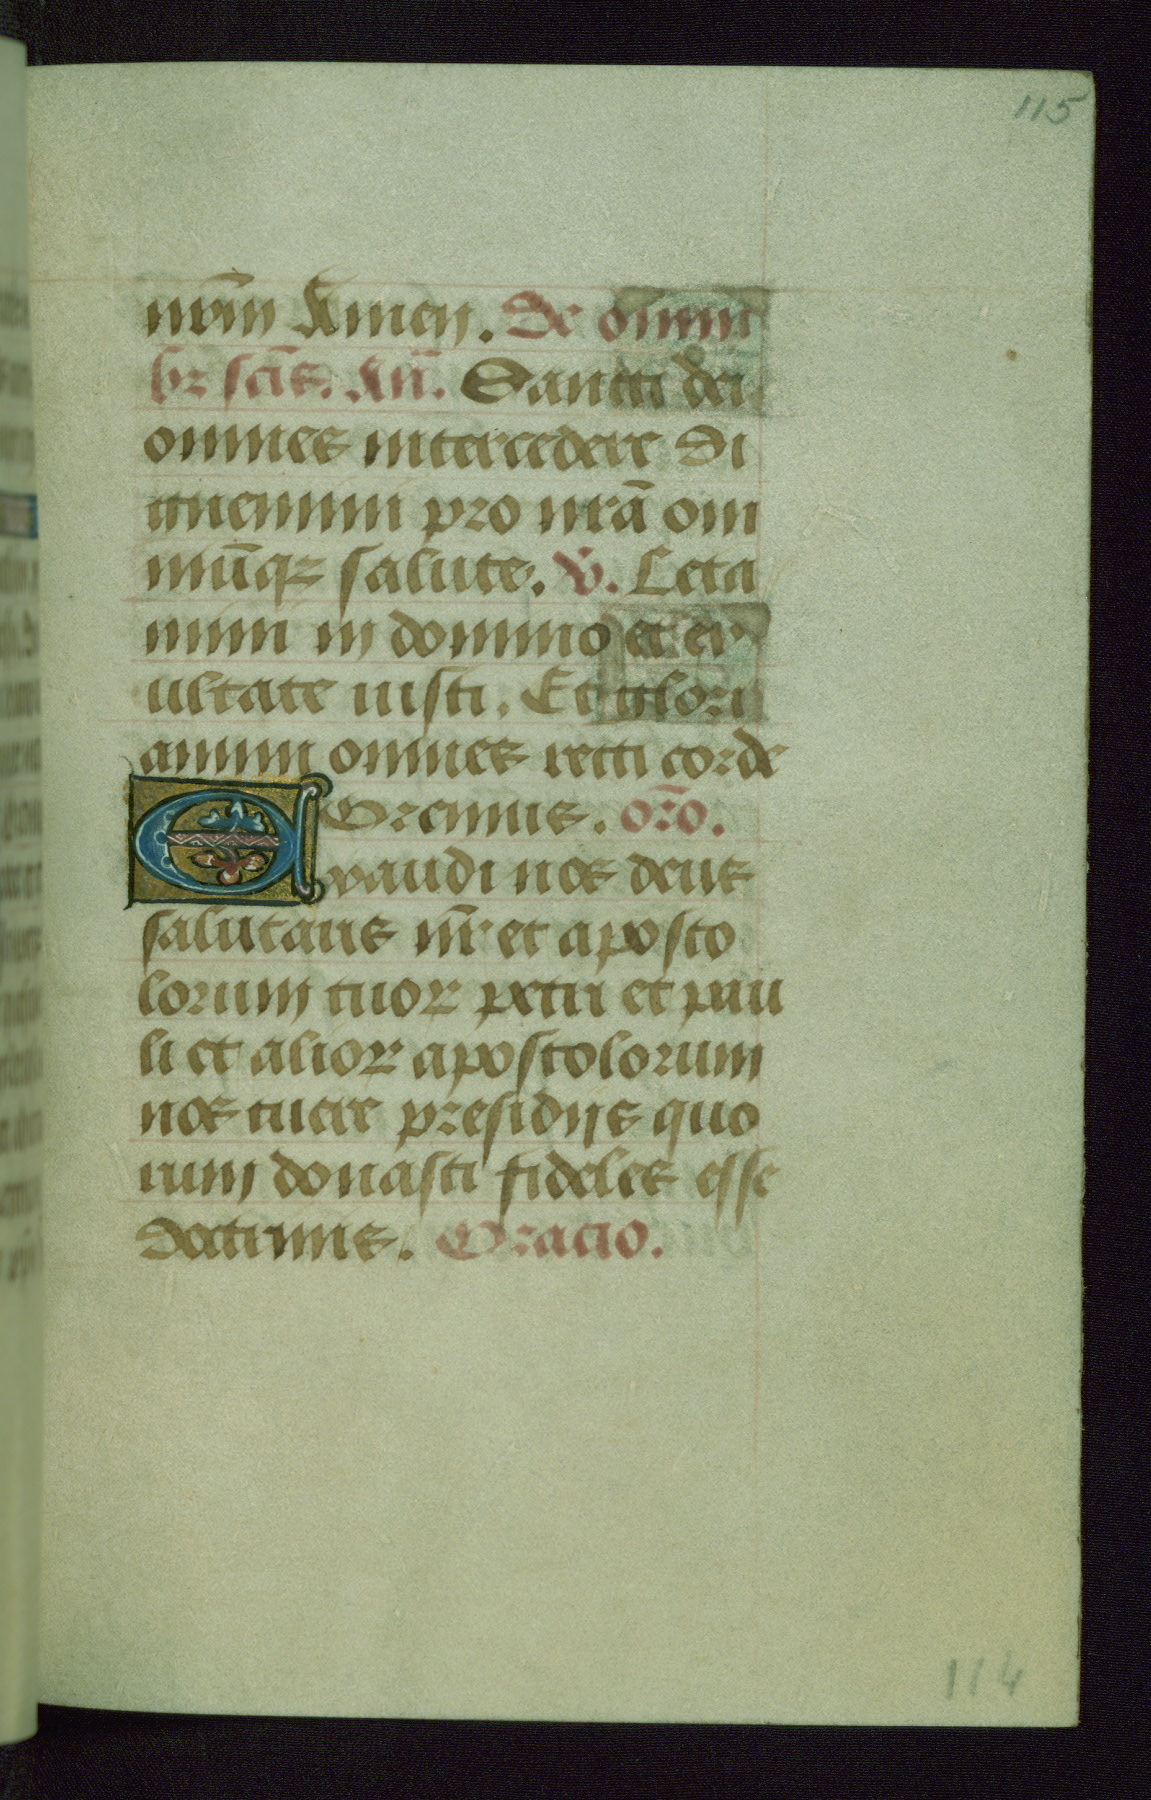 115
nrm̄ Amen. De omni
bꝫ sc̄is. An̄. Sancti dei
omnes intercedere di
gnemini pro nr̄a om
niūqꝫ salute. V̄. Leta
mini in domino et ex
ultate iusti. Et glori
amini omnes recti corde
Oremus. or̄o.
Exaudi nos deus
salutaris nr̄ et aposto
lorum tuoꝝ petri et pau
li et alioꝝ apostolorum
nos tuere presidijs quo
rum donasti fideles esse
doctrinis. Oracio.
114